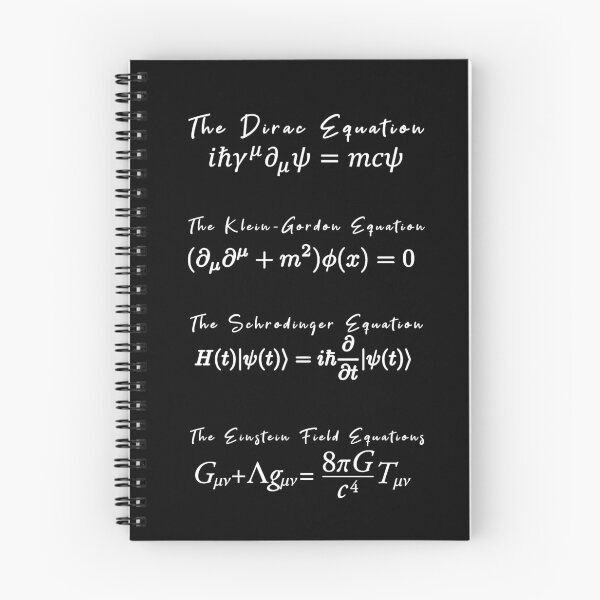 The Dirac Equation
iħγ^μ∂_μψ = mcψ
The Klein-Gordon Equation
(∂_μ∂^μ + m²)ϕ(x) = 0
The Schrodinger Equation
H(t)|ψ(t)⟩ = iħ ∂/∂t |ψ(t)⟩
The Einstein Field Equations
G_μν+Λg_μν= 8πG/c⁴ T_μν